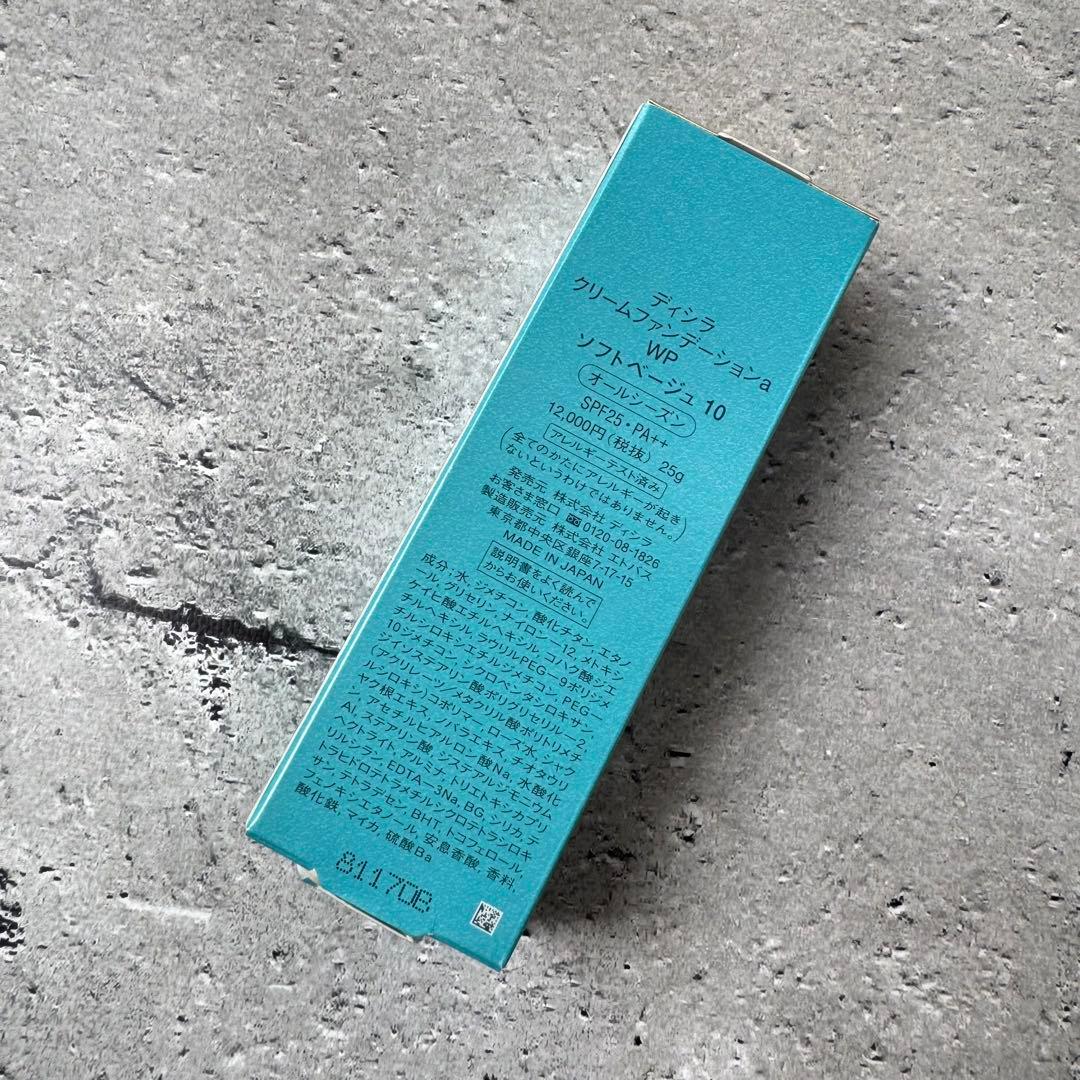 ディシラ
クリームファンデーションa
WP
ソフトベージュ 10
オールシーズン
SPF25・PA++
12,000円(税抜) 25g
アレルギーテスト済み
(全てのかたにアレルギーが起き
ないというわけではありません。)
発売元 株式会社 ディシラ
お客さま窓口 0120-08-1826
製造販売元 株式会社 エトバス
東京都中央区銀座7-17-15
MADE IN JAPAN
説明書をよく読んで
からお使いください。
成分:水, ジメチコン, 酸化チタン, エタノ
ール, グリセリン, ナイロン-12, メトキシ
ケイヒ酸エチルヘキシル, コハク酸ジエ
チルヘキシル, ラウリルPEG-9ポリジメ
チルシロキシエチルジメチコン, PEG-
10ジメチコン, シクロペンタシロキサン,
ジイソステアリン酸ポリグリセリル-2,
(アクリレーツ/メタクリル酸ポリトリメチ
ルシロキシ)コポリマー, ローズ水, シャク
ヤク根エキス, ノバラエキス, チオタウリ
ン, アセチルヒアルロン酸Na, 水酸化
Al, ステアリン酸, ジステアルジモニウム
ヘクトライト, アルミナ, トリエトキシカプリ
リルシラン, EDTA-3Na, BG, シリカ, テ
トラヒドロテトラメチルシクロテトラシロキ
サン, テトラデセン, BHT, トコフェロール,
フェノキシエタノール, 安息香酸, 香料,
酸化鉄, マイカ, 硫酸Ba
8117OB